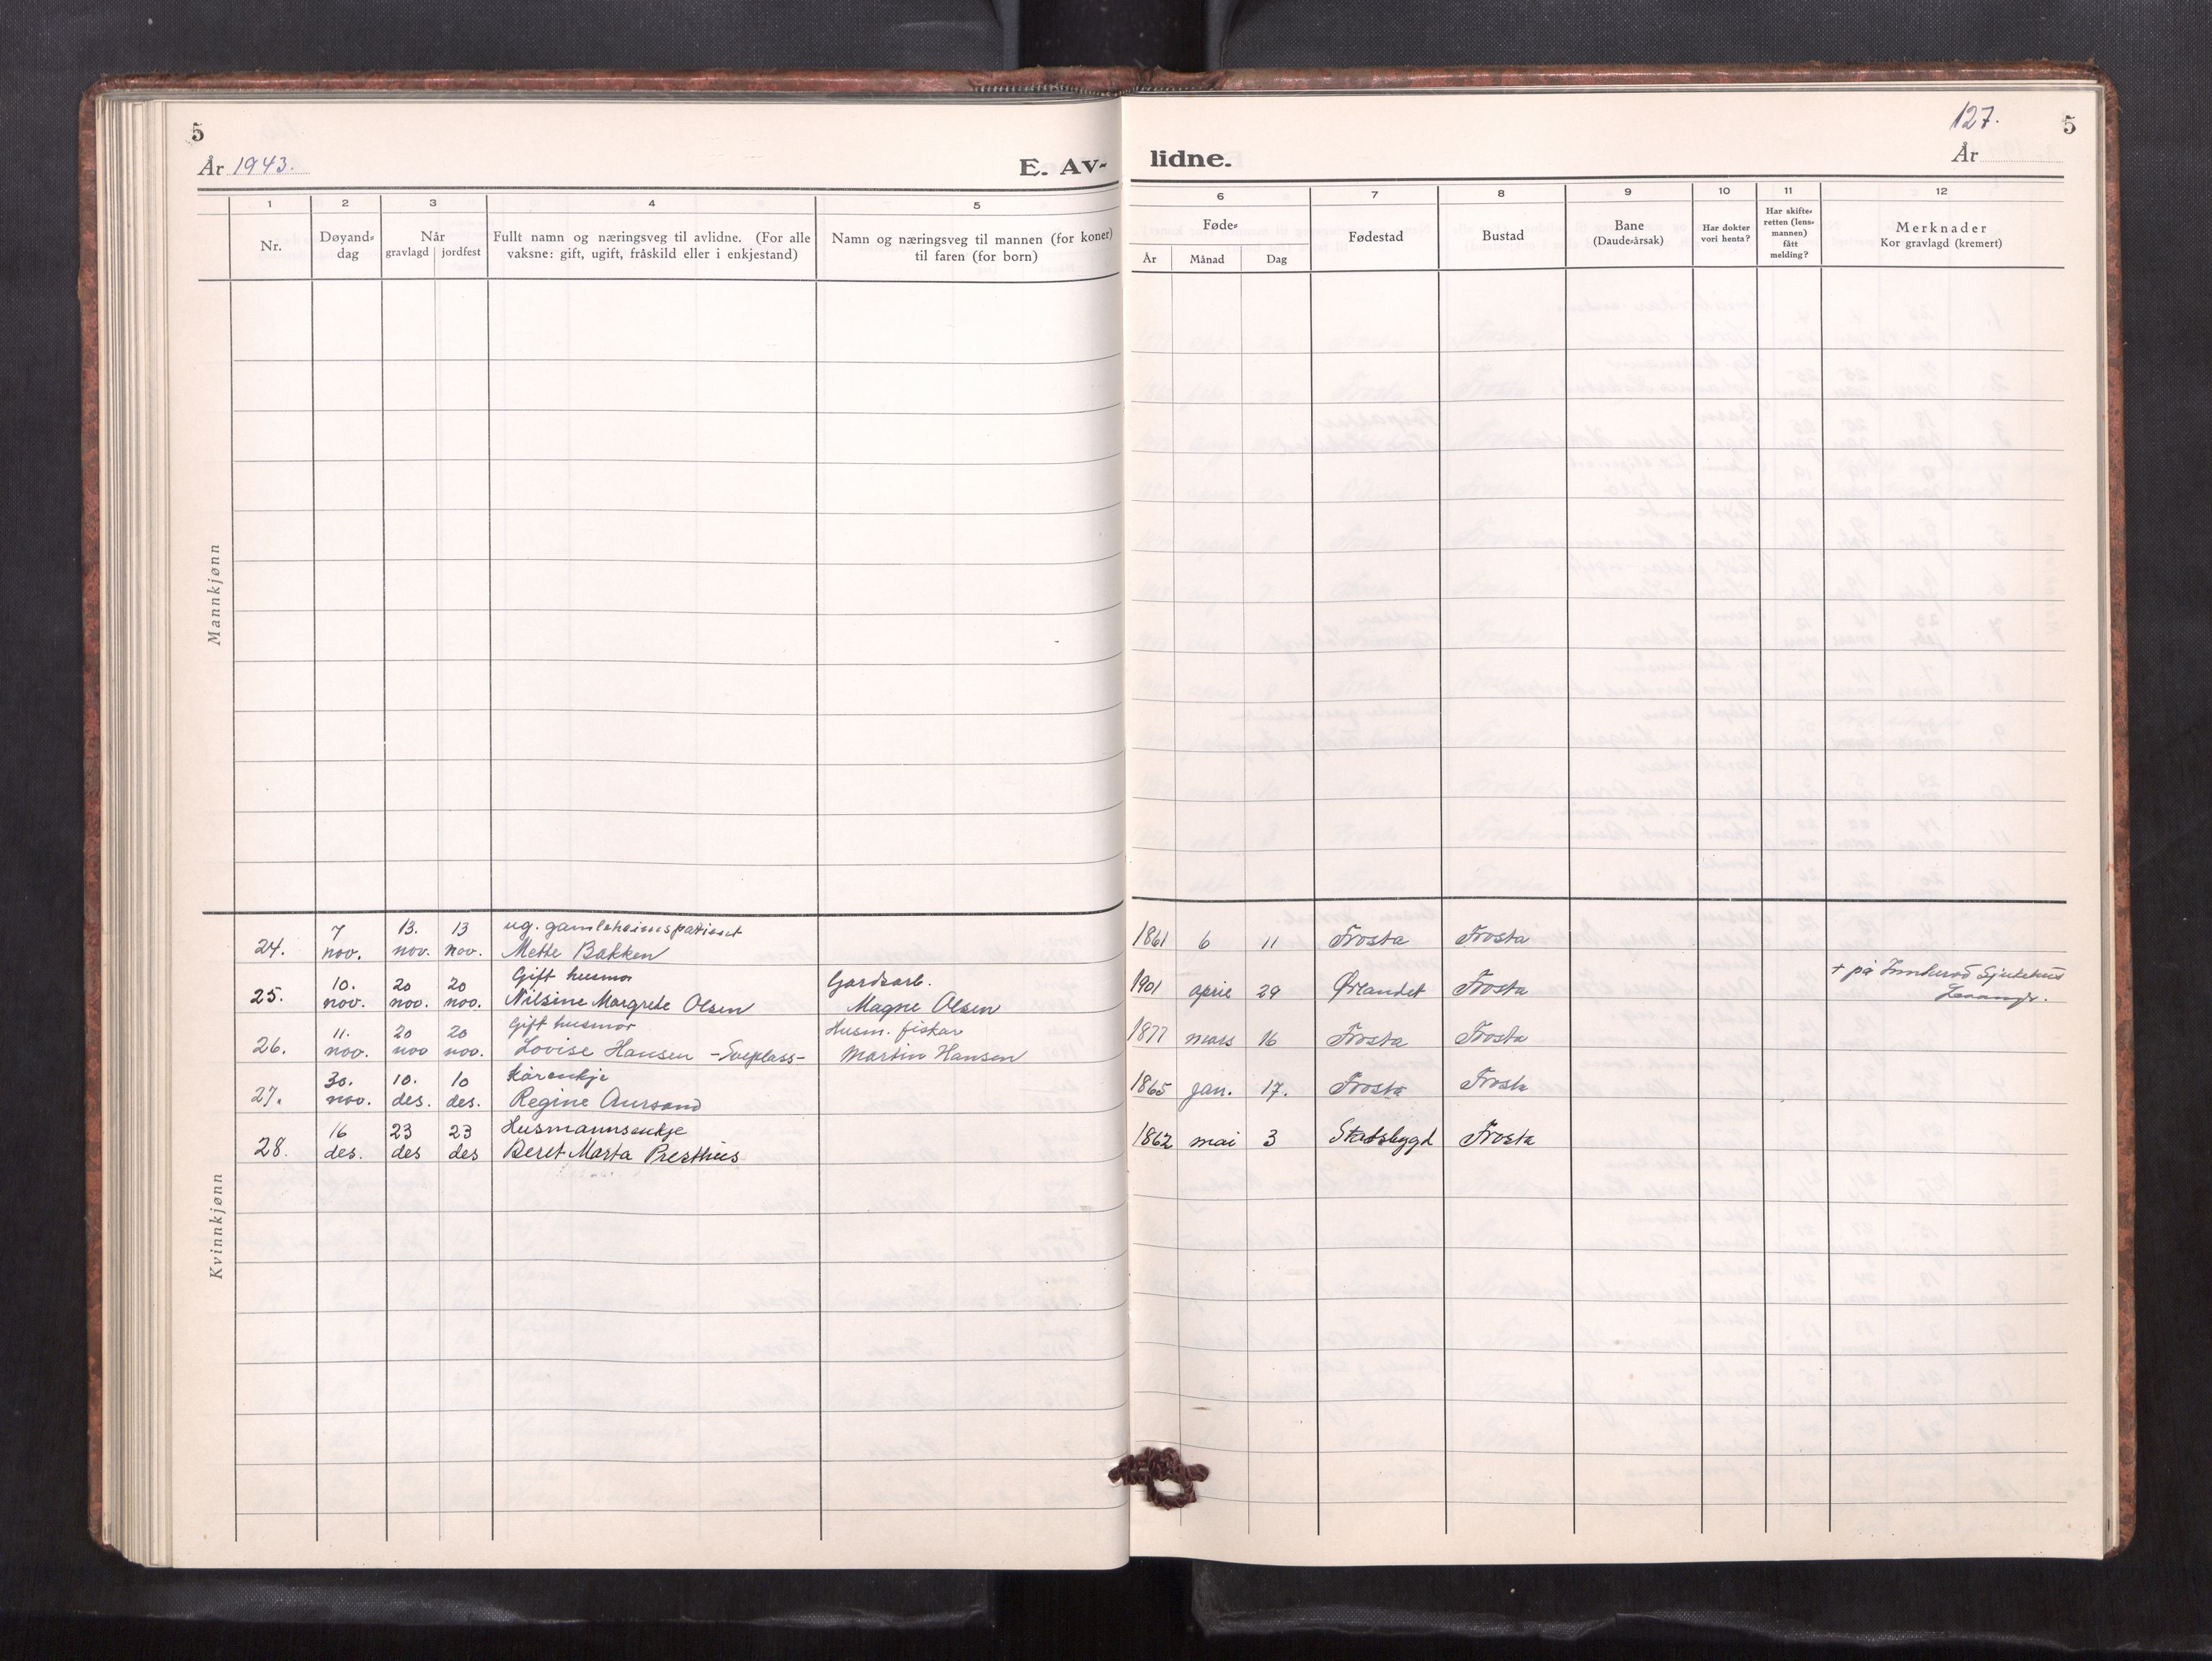 5
År 1943.
E. Av-
lidne.
127.
5
År
1
2
3
4
5
6
7
8
9
10
11
12
Nr.
Døyand-
dag
Når
gravlagd jordfest
Fullt namn og næringsveg til avlidne. (For alle
vaksne: gift, ugift, fråskild eller i enkjestand)
Namn og næringsveg til mannen (for koner)
til faren (for born)
Føde-
År Månad Dag
Fødestad
Bustad
Bane
(Daude-årsak)
Har dokter
vori henta?
Har skifte-
retten (lens-
mannen)
fått
melding?
Merknader
Kor gravlagd (kremert)
Mannkjønn
Kvinnkjønn
7 13. 13 ug. gamleheimspatient
24. nov. nov. nov. Mette Bakken 1861 6 11 Frosta Frosta
10. 20 20 Gift husmor Gardsarb.
25. nov. nov. nov. Nilsine Margrete Olsen Magne Olsen 1901 april 29 Ørlandet Frosta + på Innherad Sjukehus
Levanger.
11. 20 20 Gift husmor Husm. fiskar
26. nov. nov nov. Lovise Hansen - - Martin Hansen 1877 mars 16 Frosta Frosta
30. 10. 10 Kårenkje
27. nov. des. des. Regine Aursand 1865 jan. 17. Frosta Frosta
16 23 23 Husmannsenkje
28. des. des des Beret Marta Presthus 1862 mai 3 Stadsbygd Frosta